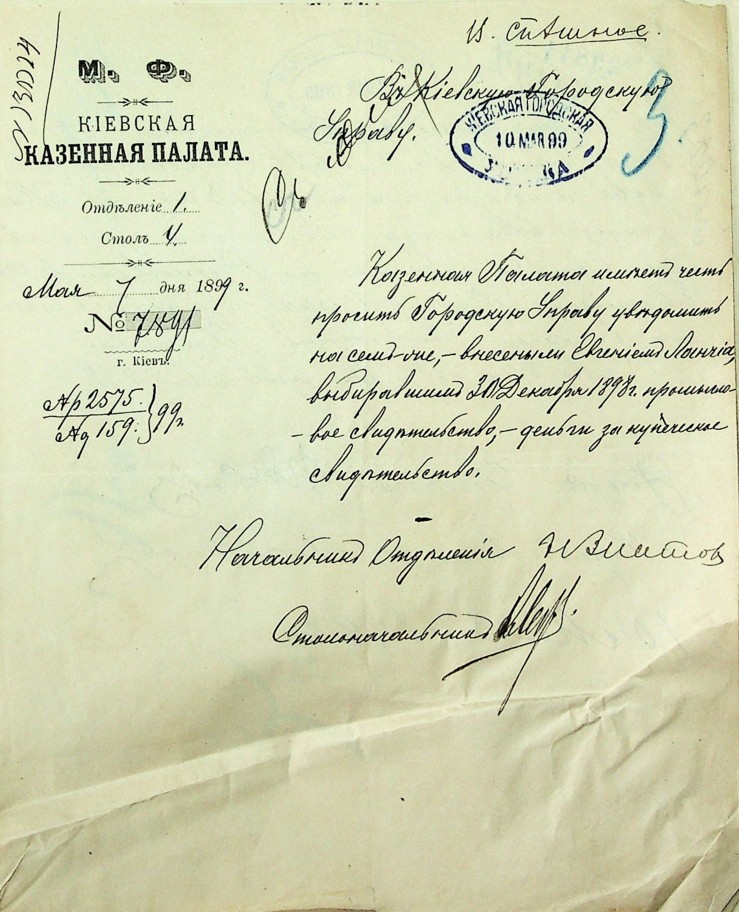 И. спѣшное.
М. Ф.
КІЕВСКАЯ
КАЗЕННАЯ ПАЛАТА.
Отдѣленіе 1.
Столъ 4.
Мая 7 дня 1899 г.
№ 7891
г. Кіевъ.
Ар 2575.
Ад 159. } 99 г.
Въ Кіевскую Городскую
Управу.
КІЕВСКАЯ ГОРОДСКАЯ
10 МАЯ 99
УПРАВА
3
Казенная Палата имѣетъ честь
проситъ Городскую Управу увѣдомить
на семъ-же, – внесены ли Евгеніемъ Ланчіа,
выбиравшимъ 30 Декабря 1898 г. промысло-
- вое свидѣтельство, – деньги за купеческое
свидѣтельство.
Начальникъ Отдѣленія
Столоначальникъ